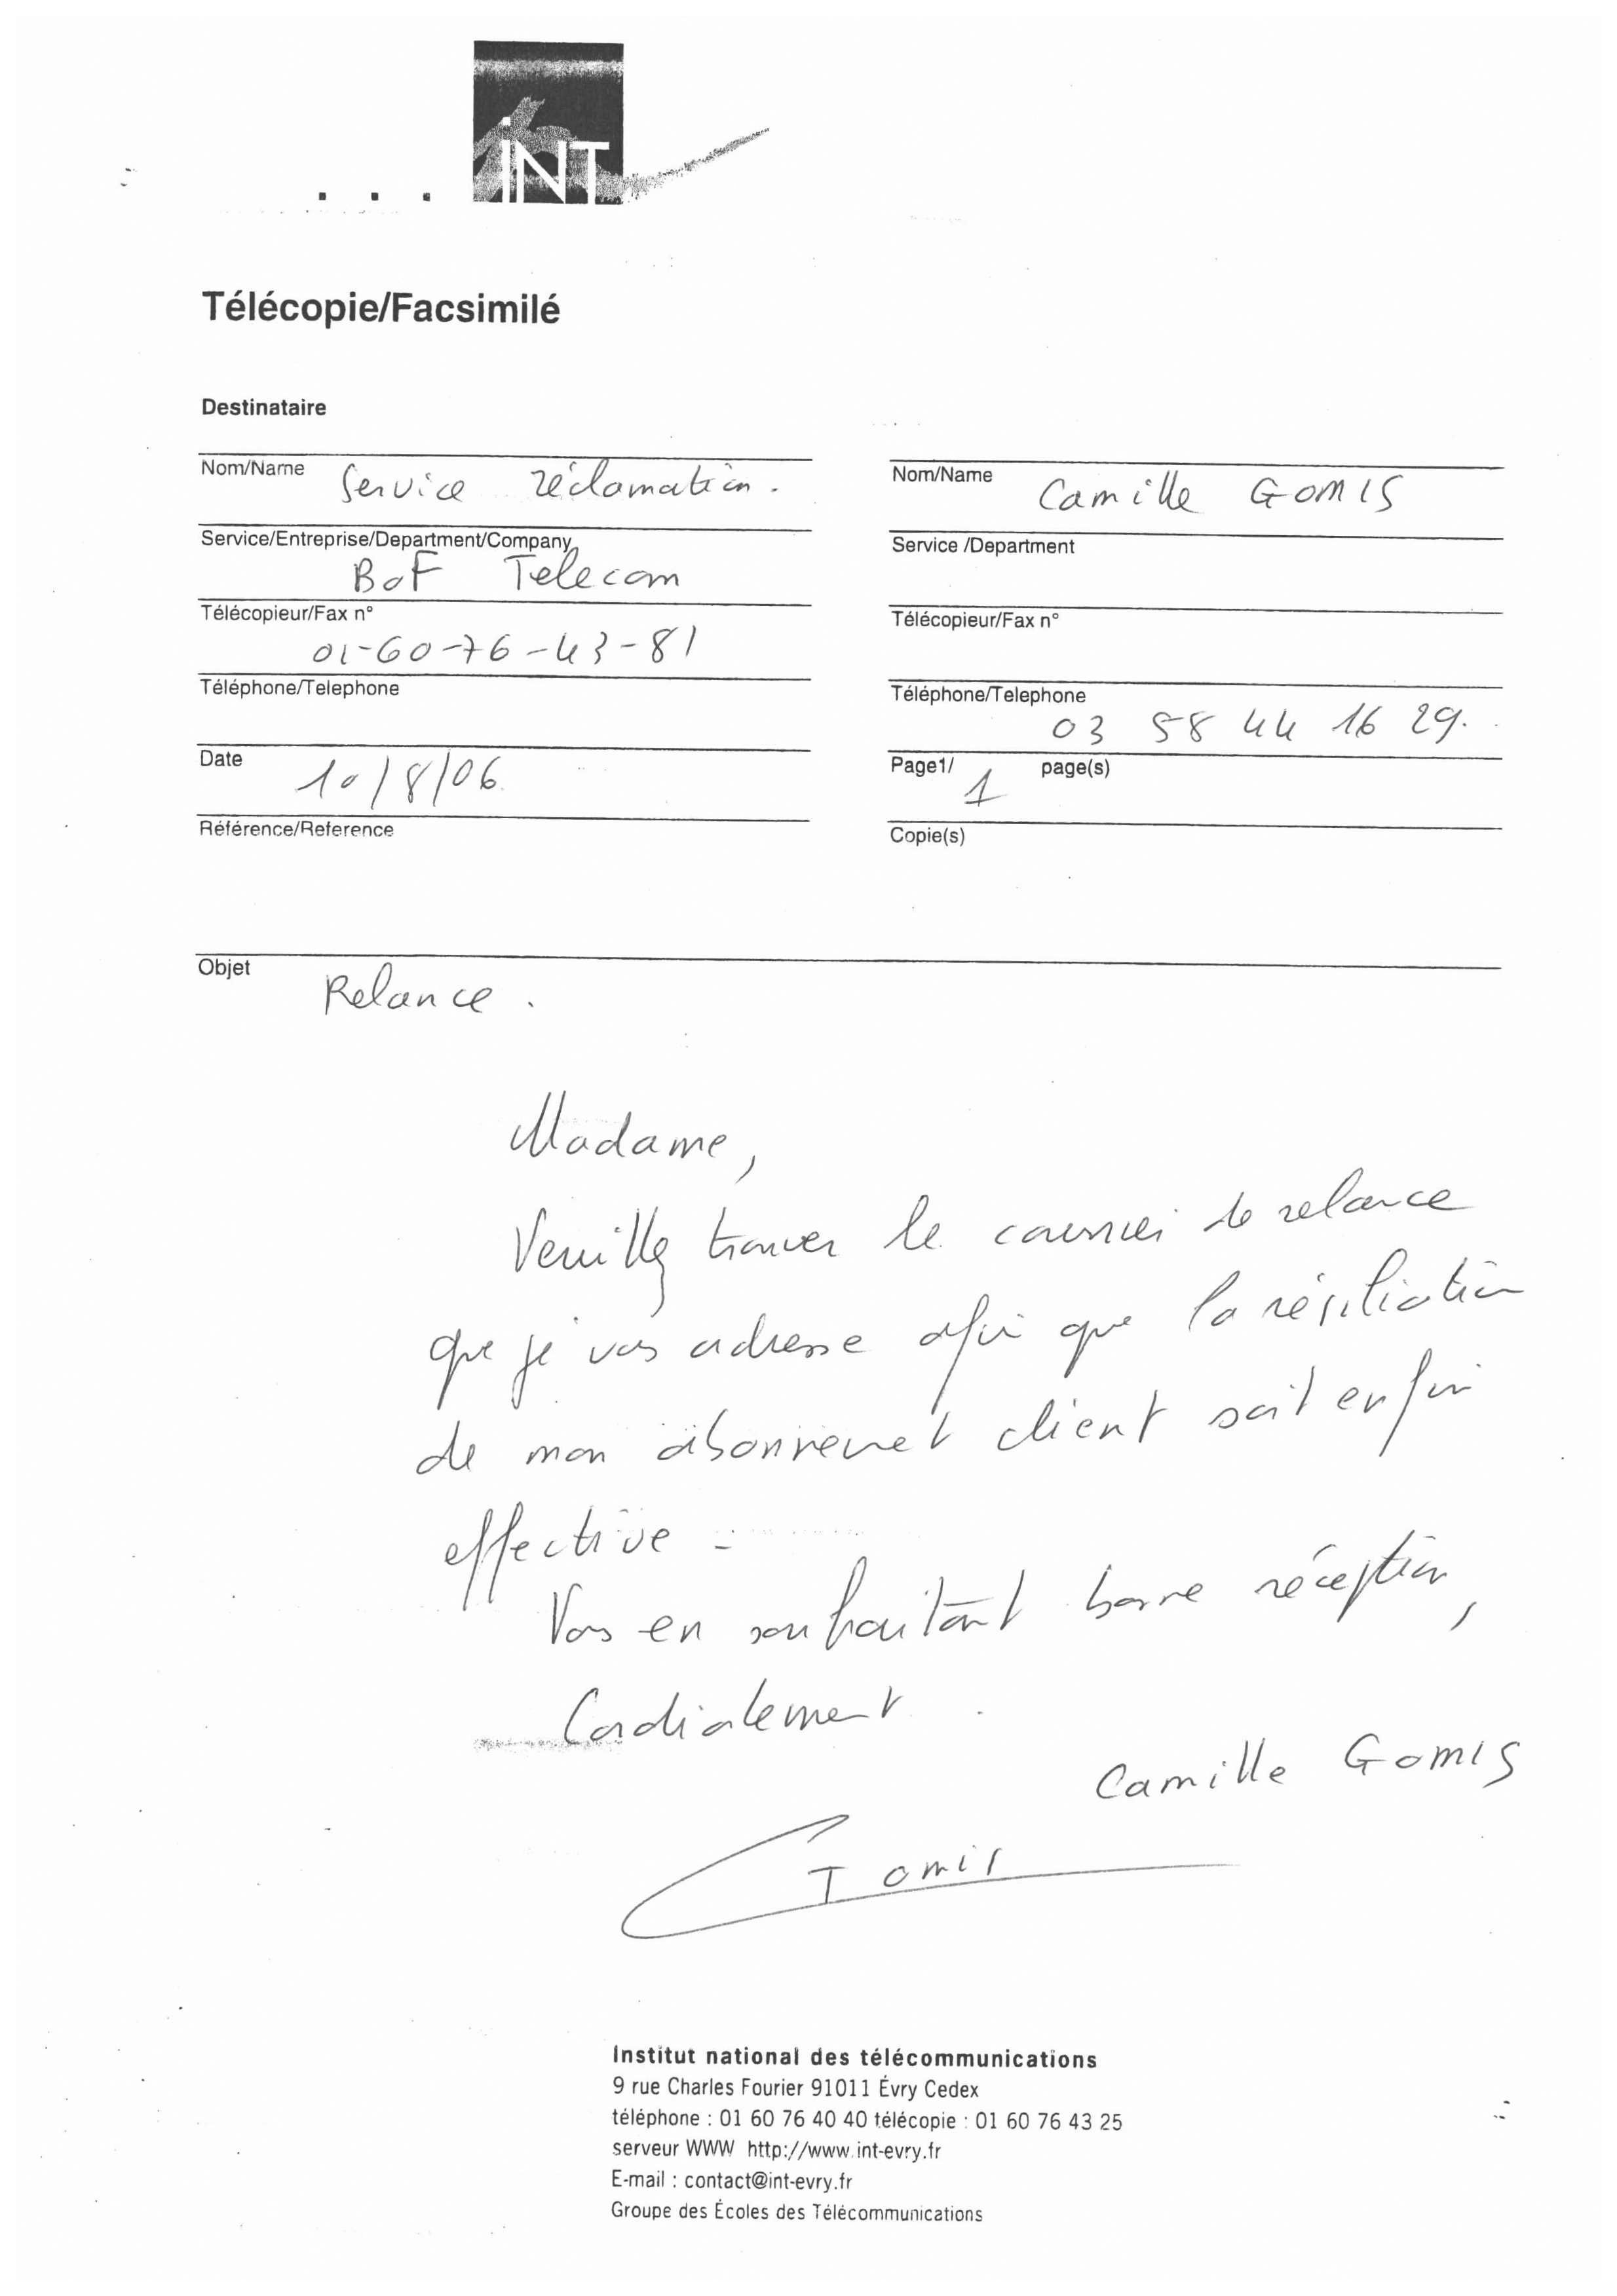 INT
Télécopie/Facsimilé
Destinataire
Nom/Name Service réclamation.
Service/Entreprise/Department/Company
BoF Telecom
Télécopieur/Fax n°
01-60-76-43-81
Téléphone/Telephone
Date 10/8/06
Référence/Reference
Nom/Name Camille GOMIS
Service /Department
Télécopieur/Fax n°
Téléphone/Telephone
03 58 44 16 29.
Page1/ 1 page(s)
Copie(s)
Objet Relance.
Madame,
Veuillez trouver le courrier de relance
que je vous adresse afin que la résiliation
de mon abonnement client soit enfin
effective.
Vous en souhaitant bonne réception,
Cordialement.
Camille GOMIS
Gomis
Institut national des télécommunications
9 rue Charles Fourier 91011 Évry Cedex
téléphone : 01 60 76 40 40 télécopie : 01 60 76 43 25
serveur WWW http://www.int-evry.fr
E-mail : contact@int-evry.fr
Groupe des Écoles des Télécommunications